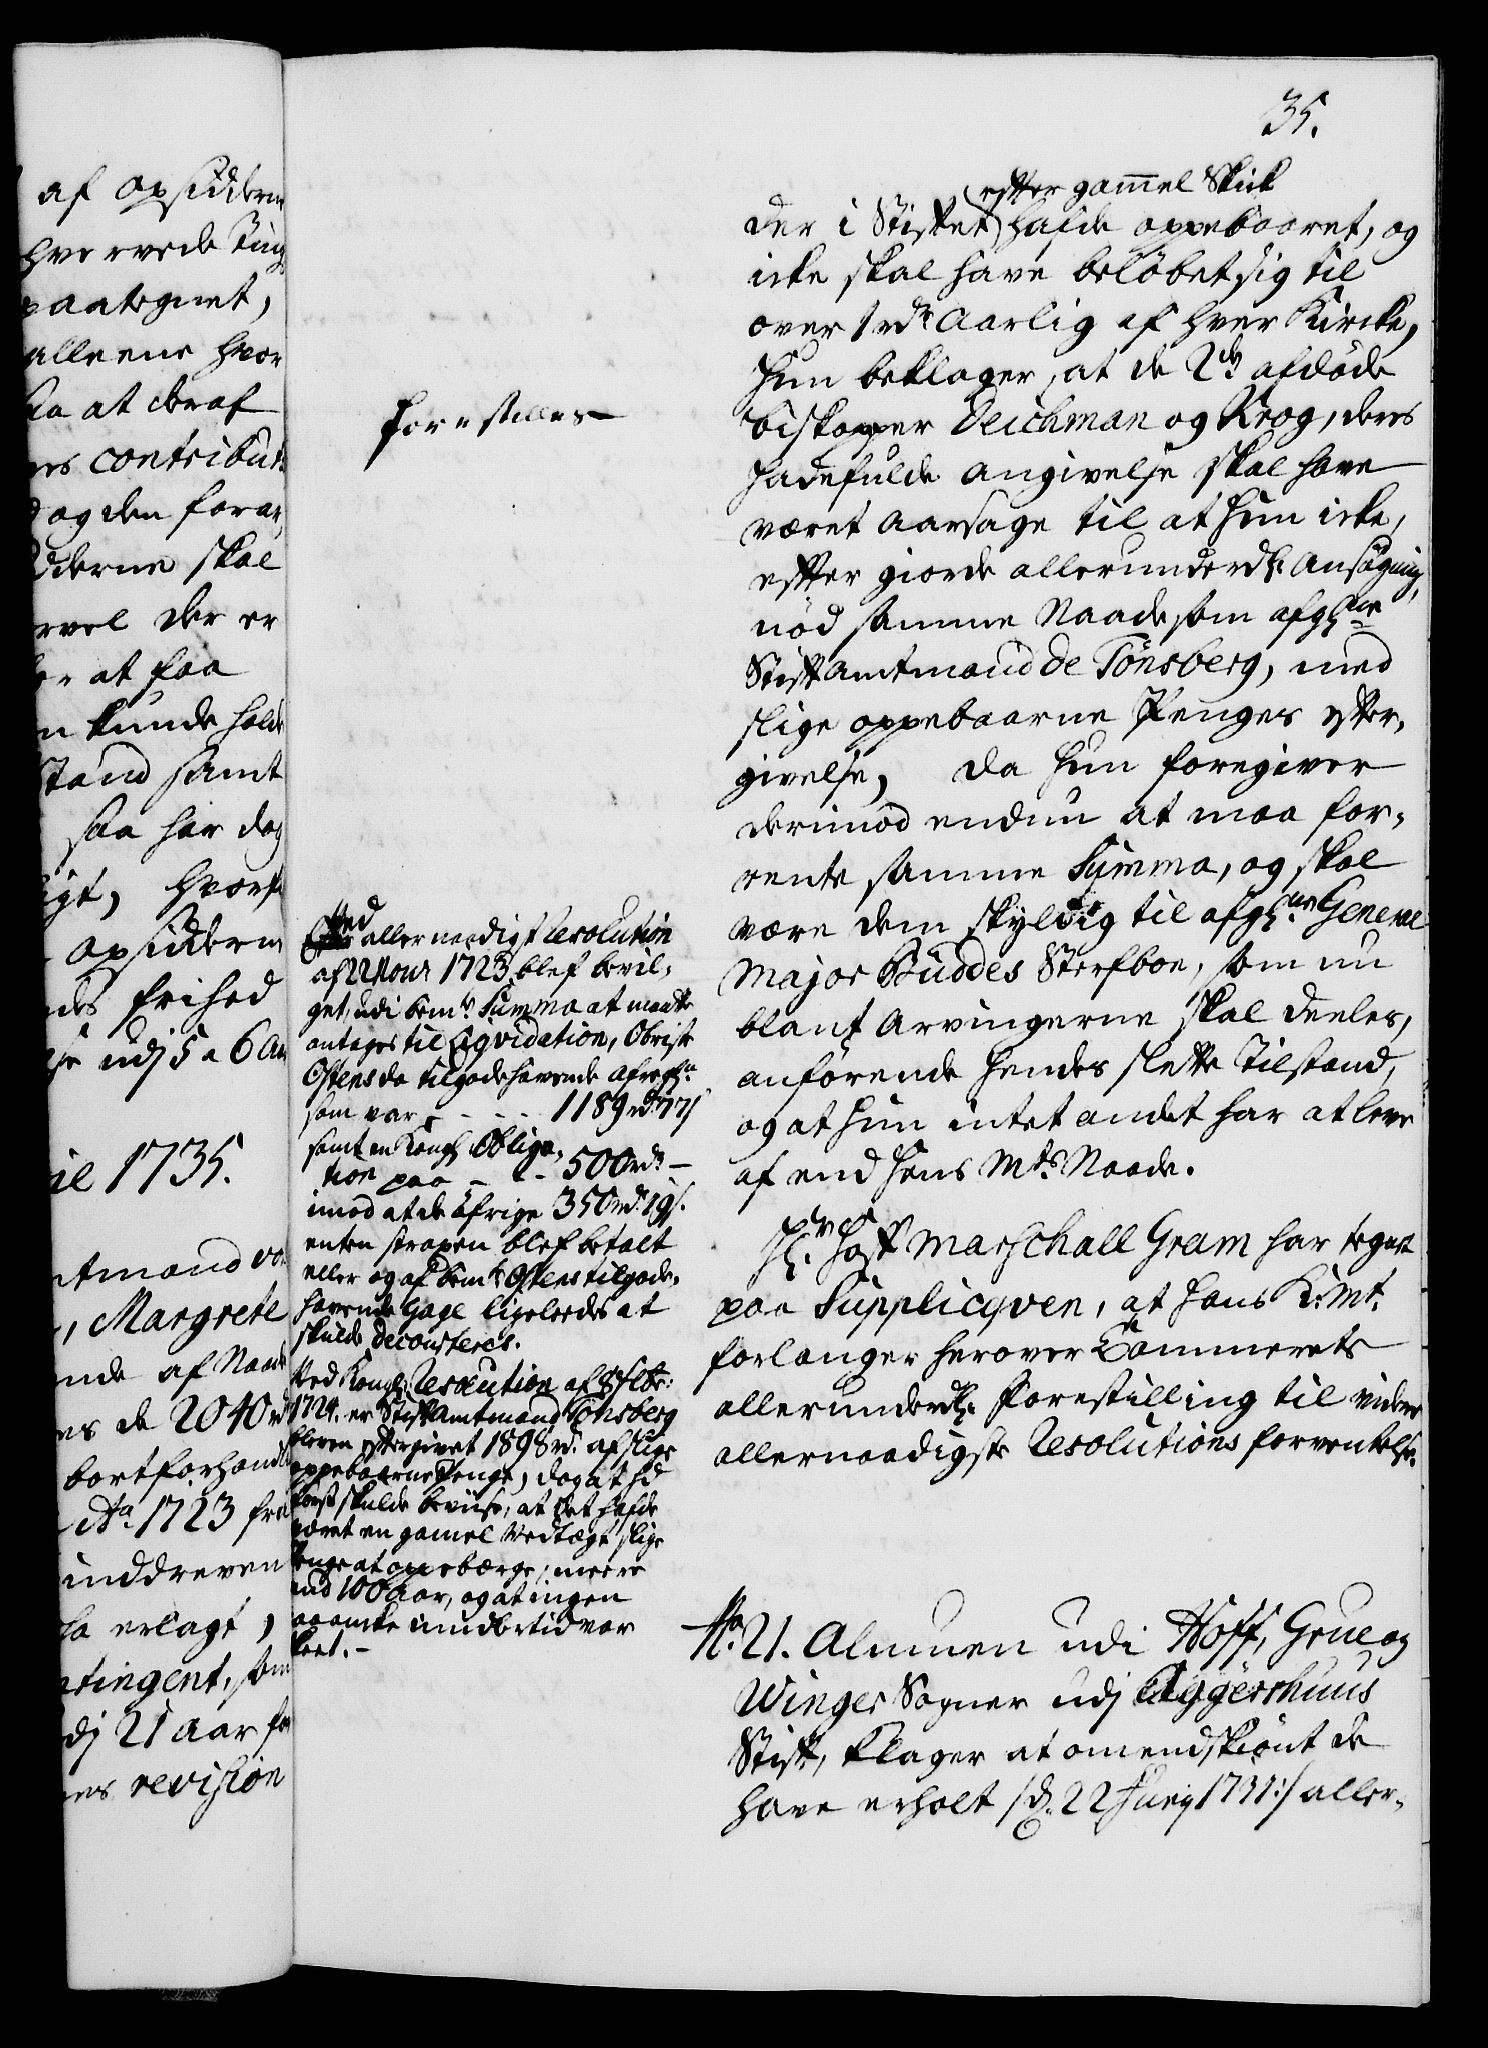 35.
af opsidderne
hvervede Ting
paategnet,
alleene hvor
saa at deraf
res contribut
og den foran
dderne skal
rvel der er
for at faa
n kunde holde
stand samt
saa har dog
igt, hvorfor
opsidderne
des frihed
udj 5 a 6 Aar
il 1735.
Amtmand
, Margrete
nde af Naade
es de 2040 rd
bortforhandl
Ao. 1723 fra
inddreven
erlagt,
ntingent, som
dj 21 aar
es revision
forestilles
Ved allernaadigst Resolution
af 22 Nour 1723 blef bevil-
get, udi bemte Summa at maatte
antages til Liqvidation, Obriste
Ostens da tilgodehavende afregn:
som var - - - 1189 rdr 77 s
samt en Kongl Obliga-
tion paa - - - 500 rdr -
imod at de öfrige 350 rdr 19 s.
enten strapen blef betalt
eller og af bemte Ostens tilgode-
havende Gage ligeledes at
skulde decourteres.
Ved Kongl: Resolution af 8 Sbr:
1724. er Stiftamtmand Tönsberg
bleven eftergivet 1898 rd. af slige
oppebaarne Penge, dog at hd
först skulde beviise, at det hafde
været en gamel Vedtægt slige
Penge at oppebærge, meere
end 100 Aar, og at ingen
paaancke imidlertid var
skeet. -
efter gammel Skik
der i Stiftet hafde oppebaaret, og
icke skal have belöbet sig til
over 1 rdr Aarlig af hver Kircke,
Hun beklager, at de 2de afdöde
biskopper Deichman og Krog, deres
hadefulde angivelse skal have
været aarsage til at hun icke,
efter giorde allerunderd: Ansögning,
nöd samme Naade som afg:ne
Stiftamtmand de Tönsberg, med
slige oppebaarne Penges efter-
givelse, da hun foregiver
derimod endnu at maa for-
rente samme Summa, og skal
være dem skyldig til afg:ne General
Major Buddes Sterfboe, som nu
blant Arvingerne skal deeles,
anförende hendes slette Tilstand,
og at hun intet andet har at leve
af end Hans Mts Naade.
Hr. Hoff Marschall Gram har tegnet
paa Suppliqven, at Hans K. Mt.
forlanger herover Cammerets
allerunderd: Forestilling til videre
allernaadigste Resolutions forventelse.
No. 21. Almuen udi Hoff, Grue og
Winger Sogner udj Aggershuus
Stift, klager at omendskiönt de
have erholt /: d. 22 Junij 1731 :/ aller-